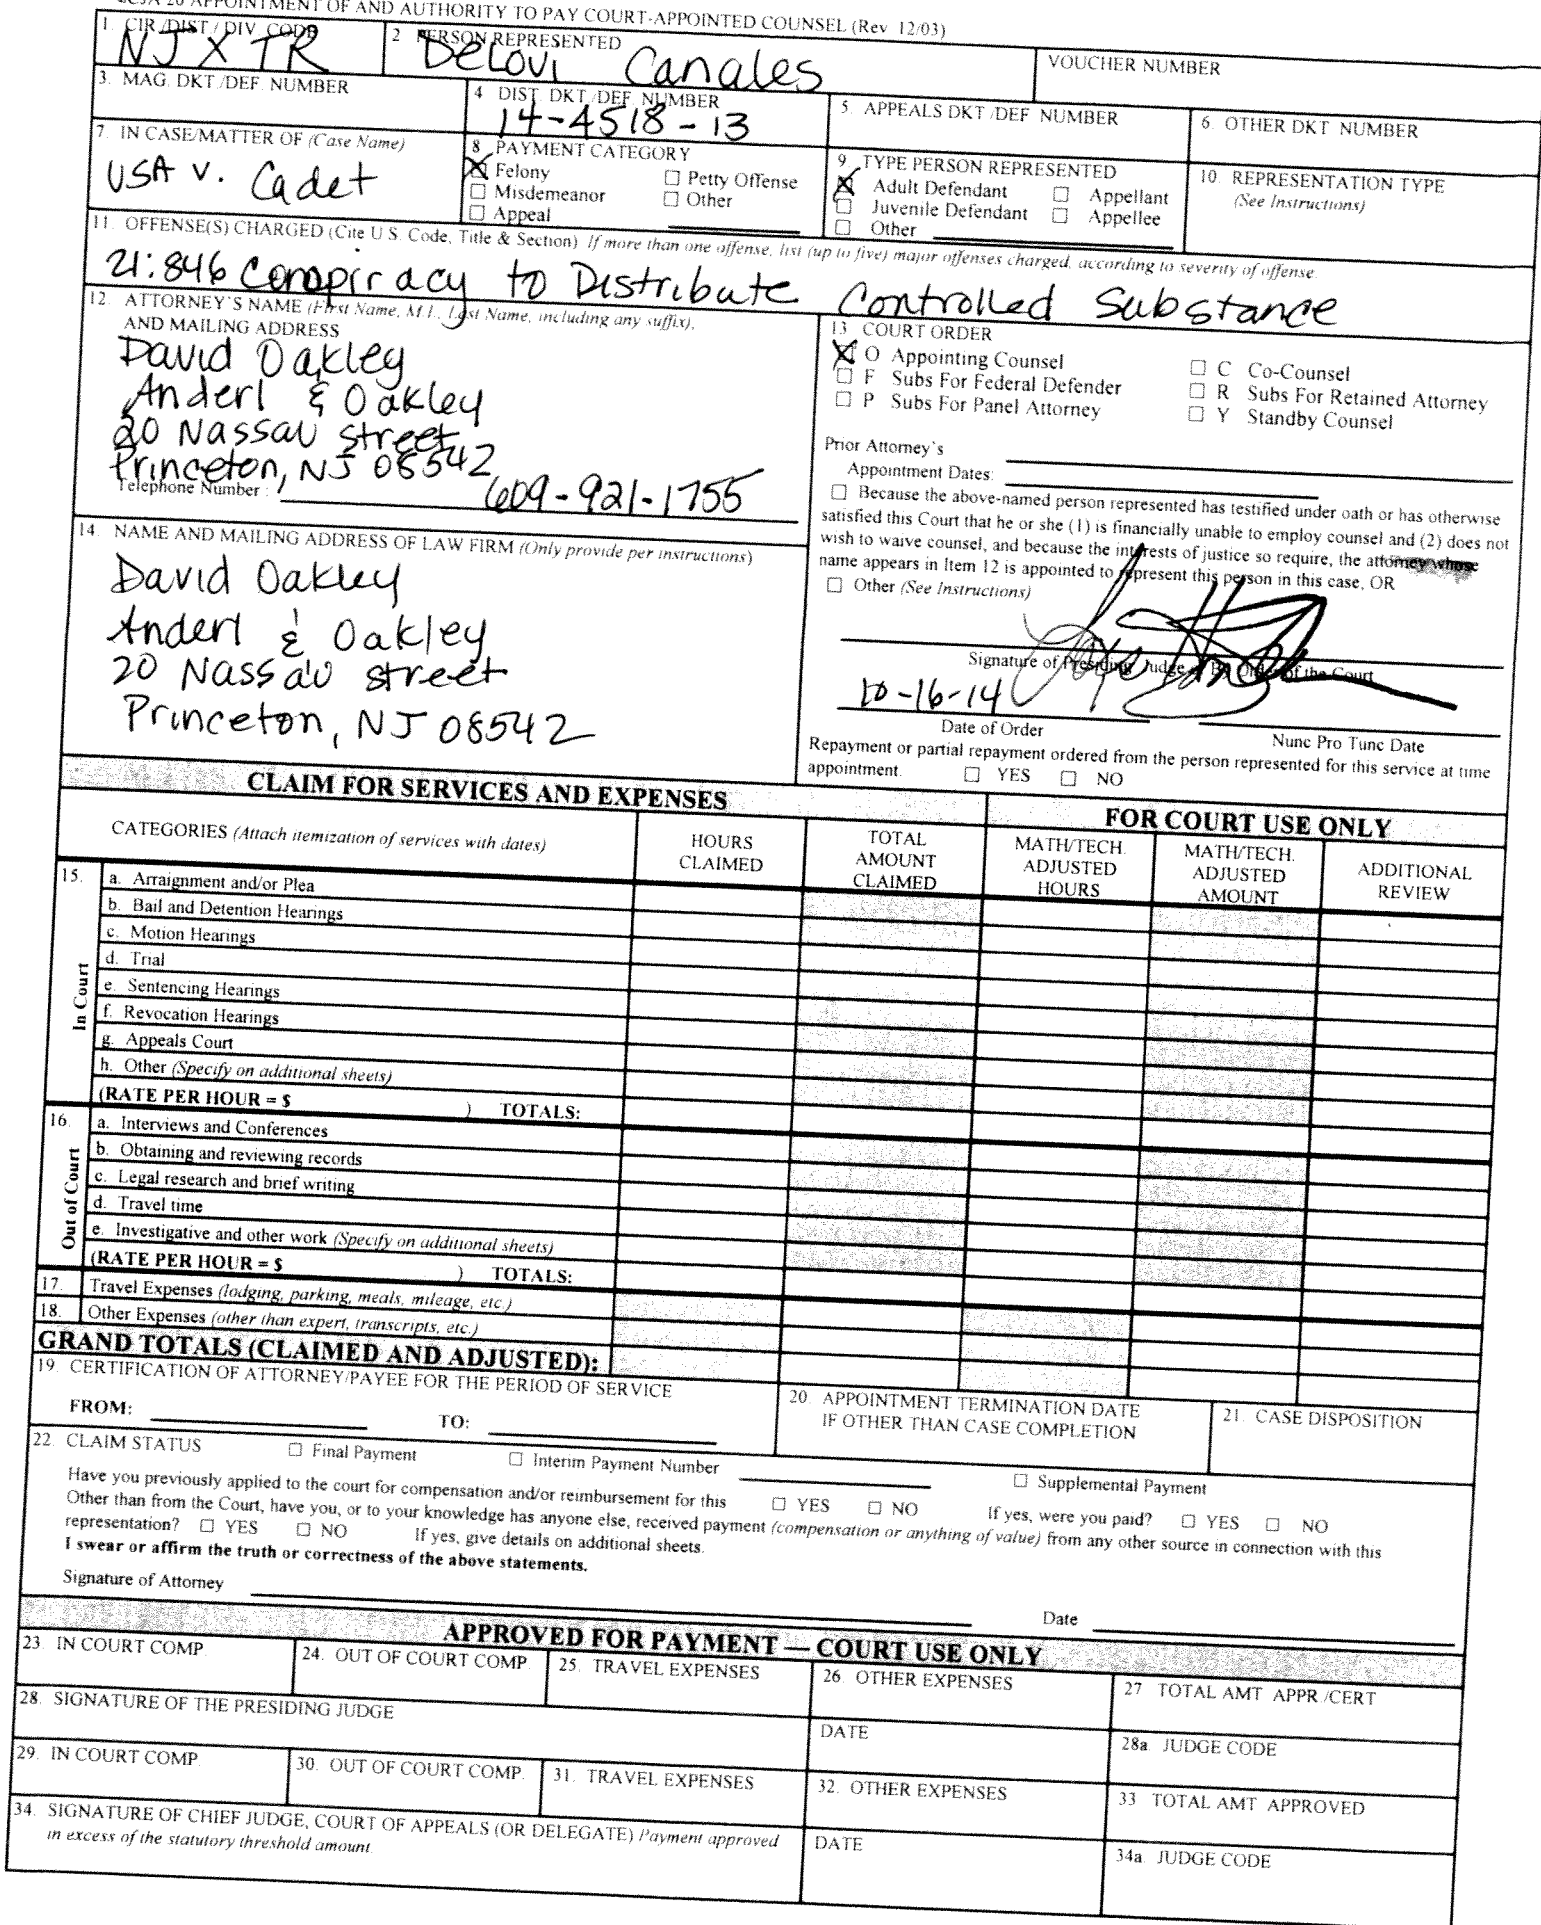 CJA 20 APPOINTMENT OF AND AUTHORITY TO PAY COURT-APPOINTED COUNSEL (Rev 12/03)
1. CIR./DIST./ DIV. CODE
NJXTR
2 PERSON REPRESENTED
Delovi Canales
VOUCHER NUMBER
3. MAG. DKT./DEF. NUMBER
4 DIST. DKT./DEF. NUMBER
14-4518-13
5. APPEALS DKT./DEF. NUMBER
6. OTHER DKT. NUMBER
7. IN CASE/MATTER OF (Case Name)
USA v. Cadet
8 PAYMENT CATEGORY
☒ Felony ☐ Petty Offense
☐ Misdemeanor ☐ Other
☐ Appeal
9 TYPE PERSON REPRESENTED
☒ Adult Defendant ☐ Appellant
☐ Juvenile Defendant ☐ Appellee
☐ Other
10. REPRESENTATION TYPE
(See Instructions)
11. OFFENSE(S) CHARGED (Cite U.S. Code, Title & Section) If more than one offense, list (up to five) major offenses charged, according to severity of offense.
21:846 Conspiracy to Distribute Controlled Substance
12. ATTORNEY'S NAME (First Name, M.I., Last Name, including any suffix),
AND MAILING ADDRESS
David Oakley
Anderl & Oakley
20 Nassau Street
Princeton, NJ 08542
Telephone Number : 609-921-1755
13 COURT ORDER
☒ O Appointing Counsel ☐ C Co-Counsel
☐ F Subs For Federal Defender ☐ R Subs For Retained Attorney
☐ P Subs For Panel Attorney ☐ Y Standby Counsel
Prior Attorney's
Appointment Dates:
☐ Because the above-named person represented has testified under oath or has otherwise
satisfied this Court that he or she (1) is financially unable to employ counsel and (2) does not
wish to waive counsel, and because the interests of justice so require, the attorney whose
name appears in Item 12 is appointed to represent this person in this case, OR
☐ Other (See Instructions)
Signature of Presiding Judge or By Order of the Court
10-16-14
Date of Order
Nunc Pro Tunc Date
Repayment or partial repayment ordered from the person represented for this service at time
appointment. ☐ YES ☐ NO
14. NAME AND MAILING ADDRESS OF LAW FIRM (Only provide per instructions)
David Oakley
Anderl & Oakley
20 Nassau street
Princeton, NJ 08542
CLAIM FOR SERVICES AND EXPENSES
FOR COURT USE ONLY
CATEGORIES (Attach itemization of services with dates)
HOURS CLAIMED
TOTAL AMOUNT CLAIMED
MATH/TECH. ADJUSTED HOURS
MATH/TECH. ADJUSTED AMOUNT
ADDITIONAL REVIEW
15.
In Court
a. Arraignment and/or Plea
b. Bail and Detention Hearings
c. Motion Hearings
d. Trial
e. Sentencing Hearings
f. Revocation Hearings
g. Appeals Court
h. Other (Specify on additional sheets)
(RATE PER HOUR = $ ) TOTALS:
16.
Out of Court
a. Interviews and Conferences
b. Obtaining and reviewing records
c. Legal research and brief writing
d. Travel time
e. Investigative and other work (Specify on additional sheets)
(RATE PER HOUR = $ ) TOTALS:
17. Travel Expenses (lodging, parking, meals, mileage, etc.)
18. Other Expenses (other than expert, transcripts, etc.)
GRAND TOTALS (CLAIMED AND ADJUSTED):
19. CERTIFICATION OF ATTORNEY/PAYEE FOR THE PERIOD OF SERVICE
FROM: TO:
20. APPOINTMENT TERMINATION DATE
IF OTHER THAN CASE COMPLETION
21. CASE DISPOSITION
22. CLAIM STATUS ☐ Final Payment ☐ Interim Payment Number ☐ Supplemental Payment
Have you previously applied to the court for compensation and/or reimbursement for this ☐ YES ☐ NO If yes, were you paid? ☐ YES ☐ NO
Other than from the Court, have you, or to your knowledge has anyone else, received payment (compensation or anything of value) from any other source in connection with this
representation? ☐ YES ☐ NO If yes, give details on additional sheets.
I swear or affirm the truth or correctness of the above statements.
Signature of Attorney Date
APPROVED FOR PAYMENT — COURT USE ONLY
23. IN COURT COMP.
24. OUT OF COURT COMP.
25. TRAVEL EXPENSES
26. OTHER EXPENSES
27 TOTAL AMT. APPR./CERT.
28. SIGNATURE OF THE PRESIDING JUDGE
DATE
28a. JUDGE CODE
29. IN COURT COMP.
30. OUT OF COURT COMP.
31. TRAVEL EXPENSES
32. OTHER EXPENSES
33 TOTAL AMT. APPROVED
34. SIGNATURE OF CHIEF JUDGE, COURT OF APPEALS (OR DELEGATE) Payment approved
in excess of the statutory threshold amount.
DATE
34a. JUDGE CODE